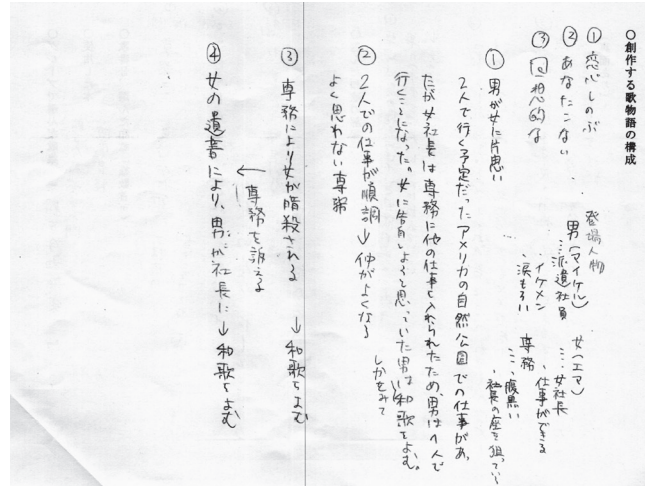 ○創作する歌物語の構成
① 恋心しのぶ
② あなたこない
③ 回想的な
登場人物
男(マイケル)
…派遣社員
・イケメン
・涙もろい
女(エマ)
…女社長
・仕事ができる
専務
…腹黒い
・社長の座を狙っている
① 男が女に片思い
2人で行く予定だったアメリカの自然公園での仕事があっ
たが女社長は専務に他の仕事を入れられたため、男は1人で
行くことになった。女に告白しようと思っていた男は和歌をよむ。
しかをみて
② 2人での仕事が順調 → 仲がよくなる
よく思わない専務
③ 専務により女が暗殺される → 和歌をよむ
← 専務を訴える
④ 女の遺書により、男が社長に → 和歌をよむ